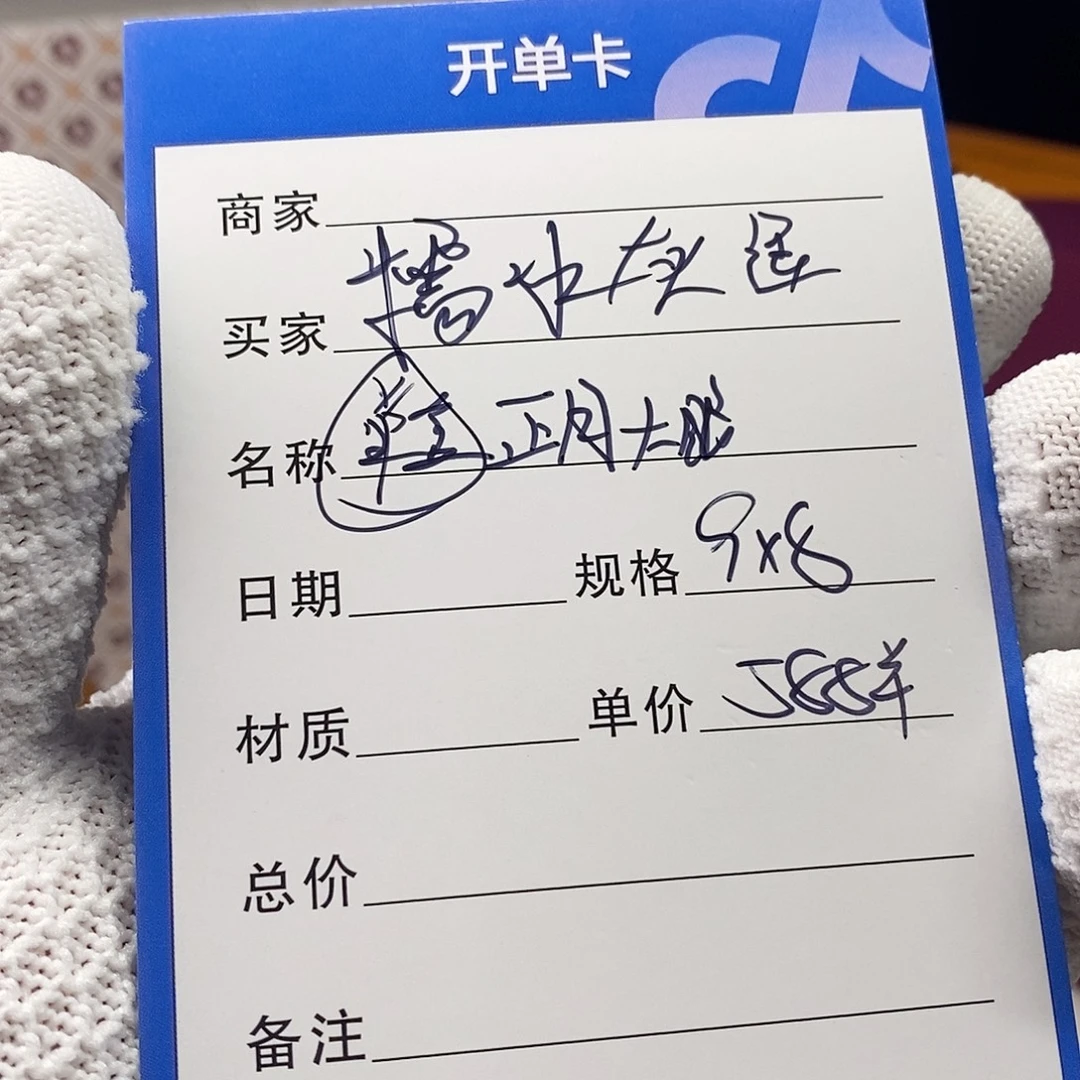 开单卡
商家
买家
名称 正月大肥
日期 规格 9x8
材质 单价 588羊
总价
备注